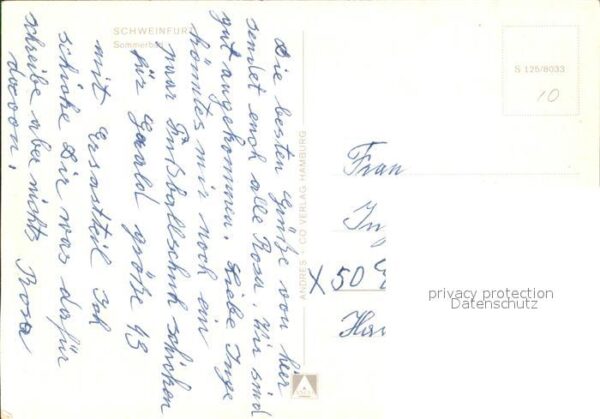 SCHWEINFURT
Sommerbad
Die besten Grüße von hier
sendet euch alle Rosa. Wir sind
gut angekommen. Liebe Inge
könntes mir noch ein
paar Fußballschuh schicken
für Gerald größe 43
mit Ersatzteil Ich
schicke Dir was dafür
schreibe aber nichts
davon. Rosa
ANDRES + CO VERLAG HAMBURG
S 125/8033
10
Frau
In
X 50
Ha
privacy protection
Datenschutz